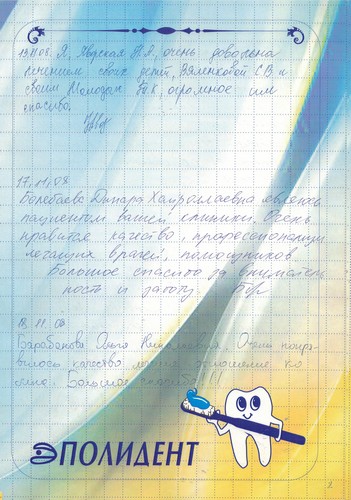 13.11.08. Я, Яворская В.А, очень довольна
лечением своих детей, Вяленковой С В и
своим Молодак Т.К, огромное им
спасибо.
17.11.08.
Болебаева Динара Хайроллаевна являюсь
пациентом вашей клиники. Очень
нравится качество, профессионализм
лечащих врачей, помощников.
Большое спасибо за вниматель
ность и заботу.
18.11.08
Барабанова Ольга Николаевна. Очень понра-
вилось качество лечения отношение ко
мне. Большое спасибо!!!
ЭПОЛИДЕНТ